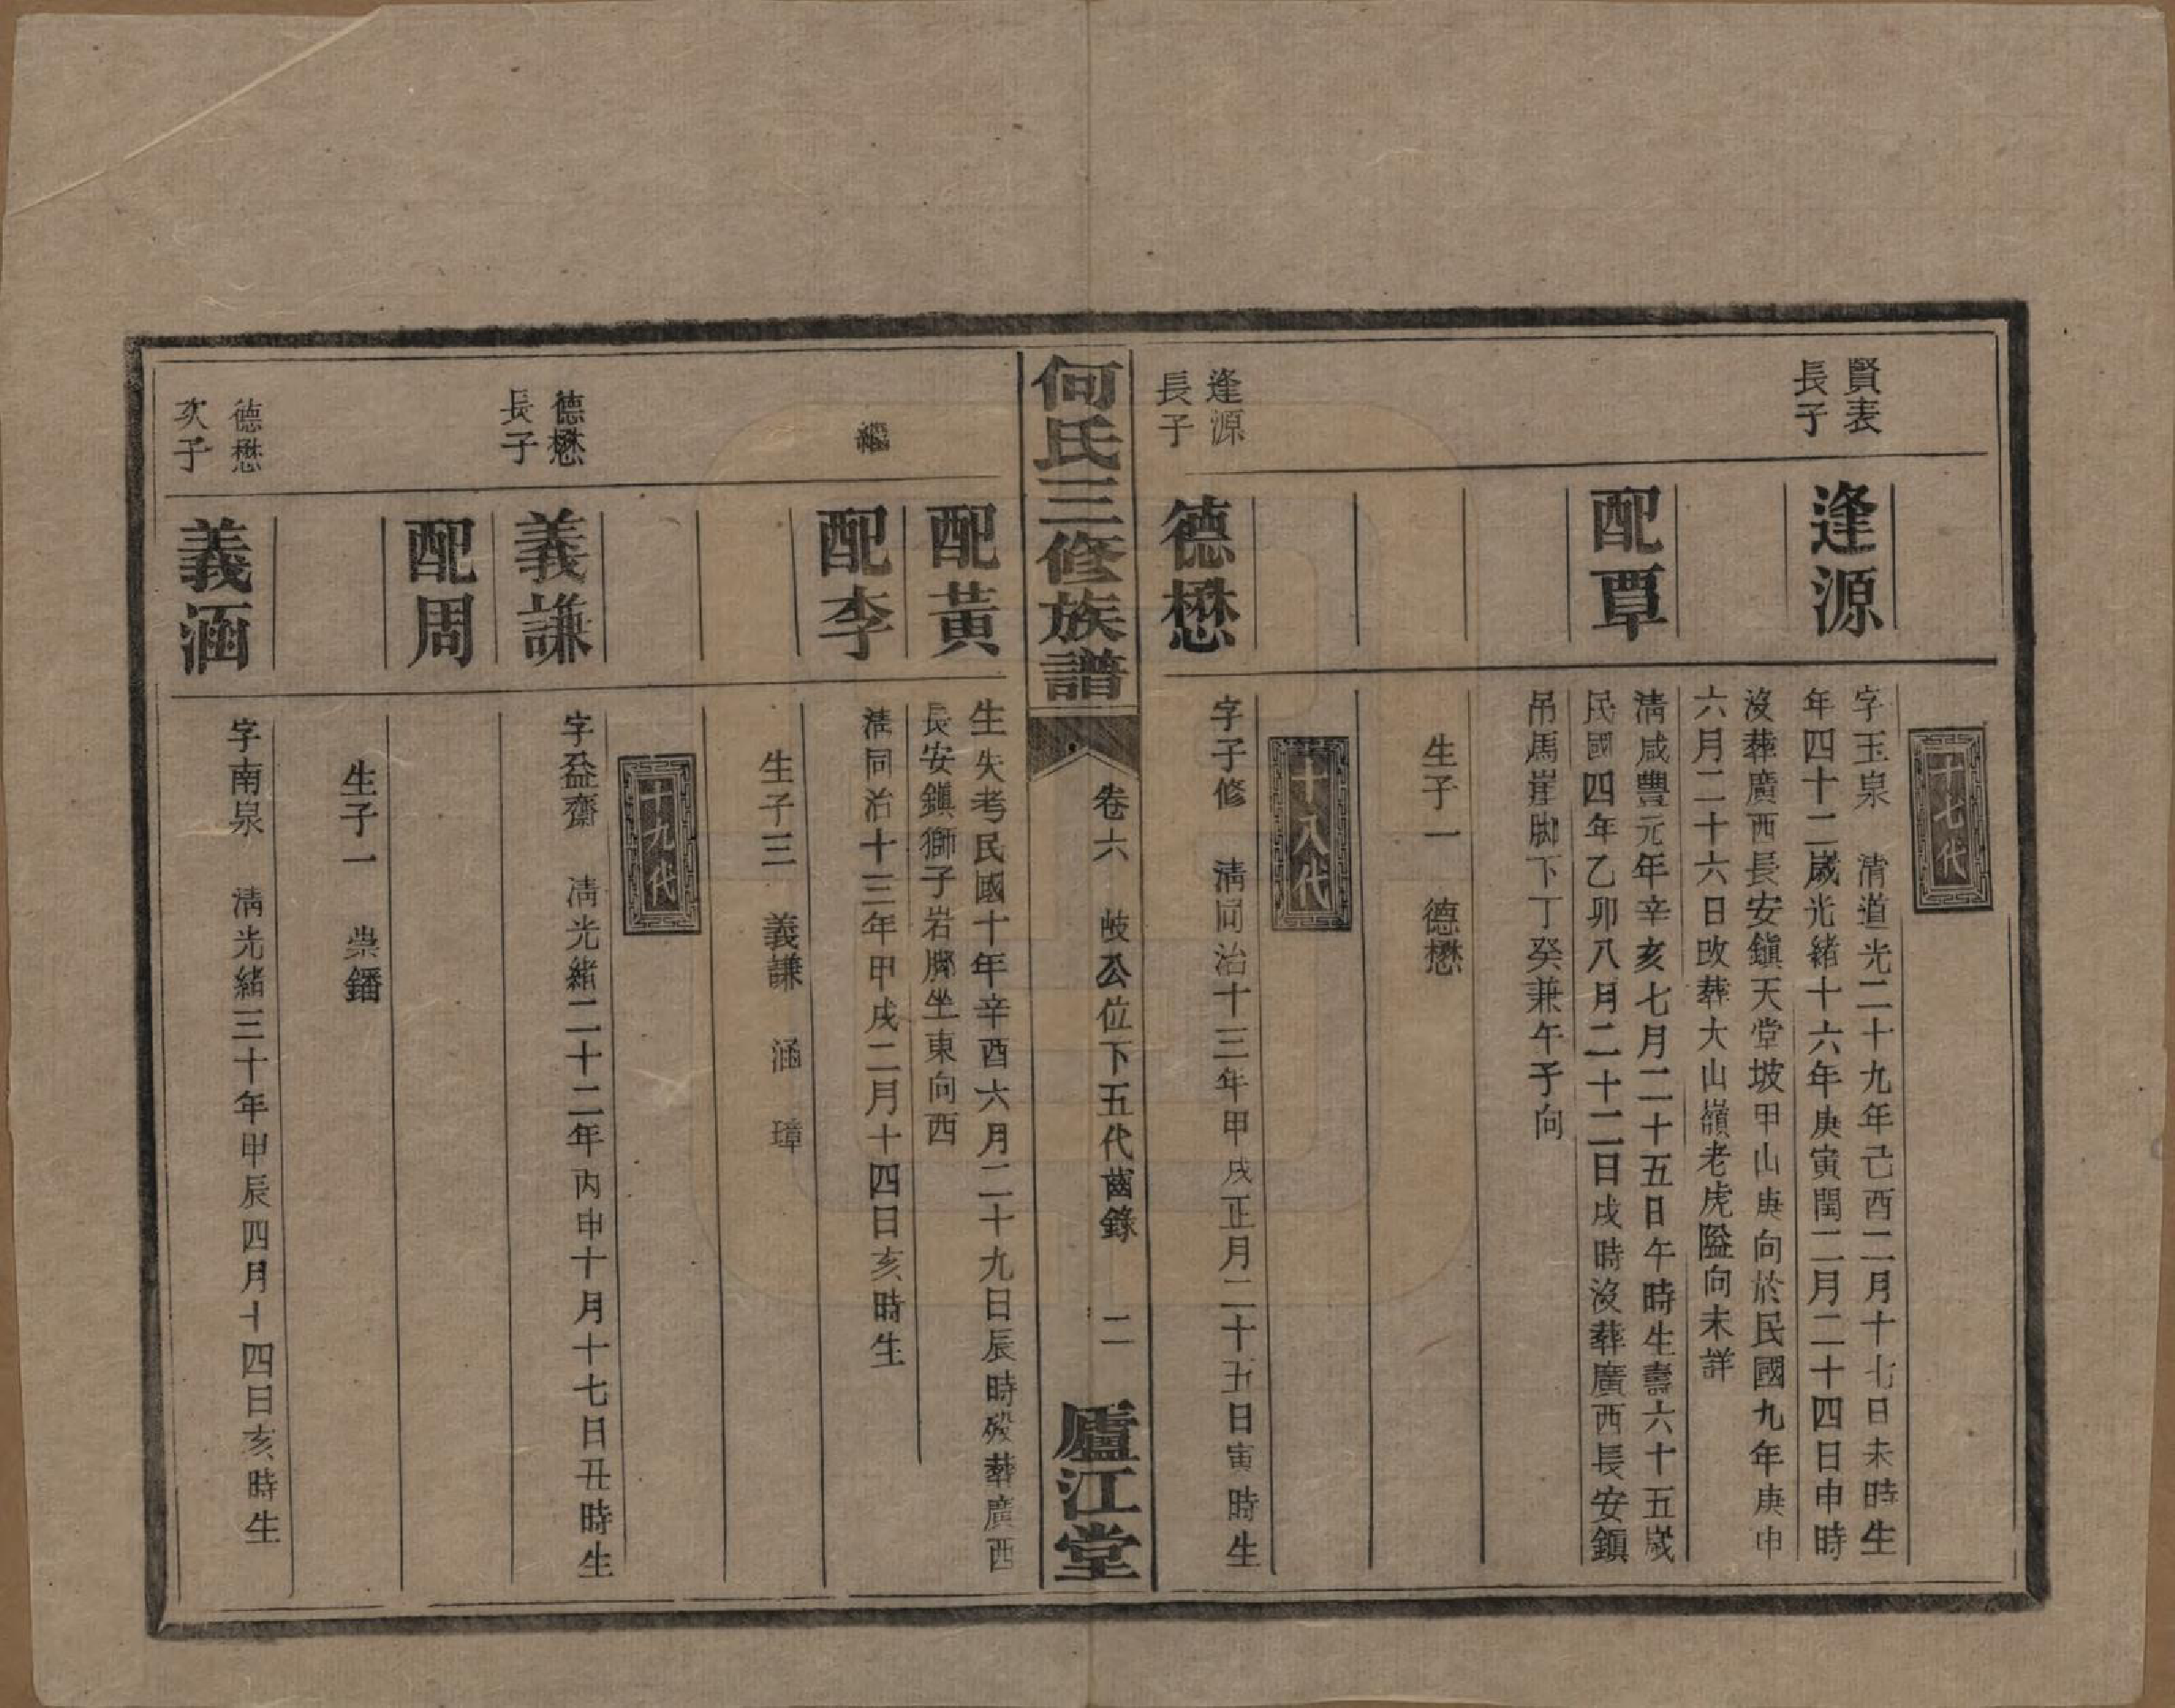 十七代
賢表
長子
逢源
字玉泉　清道光二十九年己酉二月十七日未時生
年四十二歲光緒十六年庚寅閏二月二十四日申時
沒葬廣西長安鎭天堂坡甲山庚向於民國九年庚申
六月二十六日改葬大山嶺老虎隘向未詳
配覃
清咸豐元年辛亥七月二十五日午時生壽六十五歲
民國四年乙卯八月二十二日戌時沒葬廣西長安鎭
吊馬崖脚下丁癸兼午子向
生子一　德懋
十八代
逢源
長子
德懋
字子修　清同治十三年甲戌正月二十五日寅時生
何氏三修族譜
卷六　岐公位下五代齒錄　二
廬江堂
配黃
生失考民國十年辛酉六月二十九日辰時歿葬廣西
長安鎭獅子岩脚坐東向西
繼
配李
清同治十三年甲戌二月十四日亥時生
生子三　義謙　涵　璋
十九代
德懋
長子
義謙
字益齋　清光緒二十二年丙申十月十七日丑時生
配周
生子一　崇鐇
德懋
次子
義涵
字南泉　清光緒三十年甲辰四月十四日亥時生